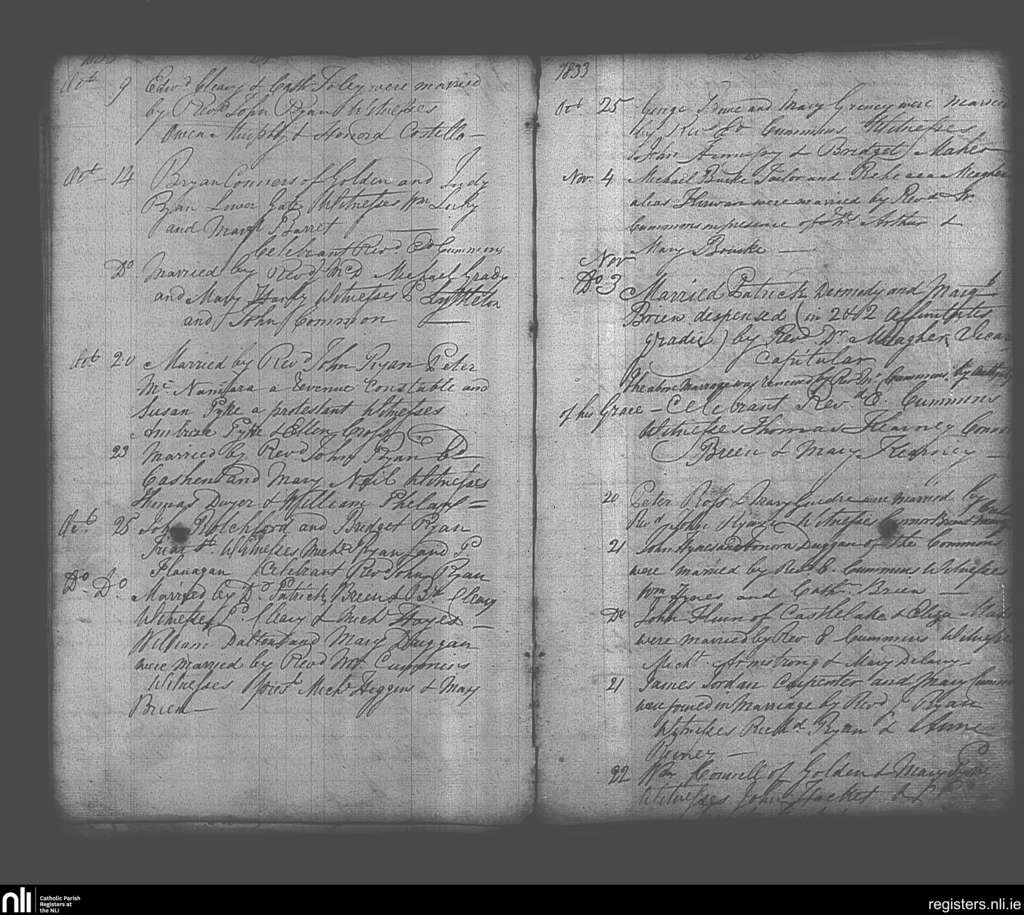 Oct 9 Edwd Cleary & Cath Foley were married
by Revd John Ryan Witnesses
Owen Murphy & Honora Costello—
Oct 14 Bryan Connors of Golden and Judy
Ryan Lower Gate Witnesses Wm
and Mary Barret
Celebrant Revd Ed Cummons
Do Married by Revd Mr Michael Grady
and Mary Witnesses P Lyttleton
and John Common
Oct 20 Married by Revd John Ryan Peter
Mc Namara a revenue Constable and
Susan Pyke a protestant Witnesses
Ambrose Pyke & Ellen
23 Married by Revd John Ryan Ed
Cashen and Mary Neil Witnesses
Thomas Dwyer & William Phelan—
Oct 25 and Bridget Ryan
Friar St. Witnesses Michl Ryan and P
Flanagan Celebrant Revd John Ryan
Do Do Married by Do Patrick Breen & Bt Cleary
Witnesses P. Cleary & Mich Hayes—
William Dalton and Mary Duggan
were married by Revd Mr Cummins
Witnesses Michl Higgins & Mary
Brien—
1833
Oct 25 George and Mary were married
by Revd Ed Cummins Witnesses
John & Bridget Maher
Nov. 4 Michael Burke Taylor and Rebecca Meagher
alias Kirwan were married by Revd Mr
Cummins in presence of Arthur &
Mary Bourke —
Nov
Do 3 Married Patrick Dermody and Margt
Brien dispensed (in 2 & 2 affinitatis
gradu) by Revd Dr. Meagher Vicar
Capitular
The above marriage was renewed by Revd Mr Cummins by authority
of his Grace — Celebrant Revd E. Cummins
Witnesses Thomas Kearney Connor
Breen & Mary Kearney —
20 Peter Ross & Mary were married by
Revd John Ryan Witnesses
21 John Hynes and Honora Duggan of the Commons
were married by Revd E Cummins Witnesses
Wm Hynes and Cath. Breen —
Do John of Castlelake & Eliza
were married by Rev E Cummins Witnesses
Michl. Armstrong & Mary Delany—
21 James Jordan Carpenter and Mary
were joined in Marriage by Revd J Ryan
Witnesses Richd Ryan & Anne
—
22 Wm of Golden & Mary
Witnesses John Hacket &
nli
Catholic Parish
Registers at
the NLI
registers.nli.ie